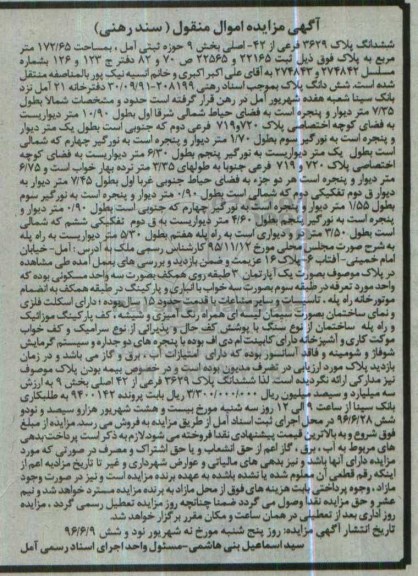 آگهی مزایده اموال منقول ( سند رهنی)
ششدانگ پلاک ۳۶۲۹ فرعی از ۴۲- اصلی بخش ۹ حوزه ثبتی آمل ، بمساحت ۱۷۲/۶۵ متر
مربع به پلاک فوق ذیل ثبت ۲۲۱۶۵ و ۲۲۵۶۵ ص ۷۰ و ۸۲ دفتر ج ۱۲۳ و ۱۲۶ بشماره
مسلسل ۲۷۴۸۴۲ و ۲۷۴۸۴۳ به آقای علی اکبر اکبری و خانم انسیه نیک پور بالمناصفه منتقل
شده است. شش دانگ پلاک بموجب اسناد رهنی ۲۰۸۱۹۹-۳۰/۰۹/۹۱ دفترخانه ۲۱ آمل نزد
بانک سینا شعبه هفده شهریور آمل در رهن گرفته است حدود و مشخصات شمالا بطول
۷/۳۵ متر دیوار و پنجره است به فضای حیاط شمالی شرقا اول بطول ۱۰/۹۰ متر دیواریست
به فضای کوچه اختصاصی پلاک ۷۲۰ و ۷۱۹ فرعی دوم که جنوبی است بطول یک متر دیوار
و پنجره است به نورگیر سوم بطول ۱/۷۰ متر دیوار و پنجره است به نورگیر چهارم که شمالی
است بطول یک متر دیواریست به نورگیر پنجم بطول ۶/۳۰ متر دیواریست به فضای کوچه
اختصاصی پلاک ۷۲۰ و ۷۱۹ فرعی جنوبا به طولهای ۳/۳۵ متر نرده بهار خواب است و ۶/۷۵
متر دیوار و پنجره است در دو جزء به فضای حیاط جنوبی غربا اول بطول ۷/۴۵ متر دیوار به
دیوار ق دوم تفکیکی دوم که شمالی است بطول ۰/۹۰ متر دیوار و پنجره است به نورگیر سوم
بطول ۱/۵۵ متر دیوار و پنجره است به نورگیر چهارم که جنوبی است بطول ۰/۹۰ متر دیوار و
پنجره است به نورگیر پنجم بطول ۴/۶۰ متر دیواریست به ق دوم تفکیکی ششم که شمالی
است بطول ۳/۵۰ متر در و دیواری است به راه پله هفتم بطول ۵/۳۰ متر دیواریست به راه پله
به شرح صورت مجلس محلی مورخ ۹۵/۱۱/۱۲ کارشناس رسمی ملک به آدرس : آمل- خیابان
امام خمینی- آفتاب ۶- پلاک ۱۶ عزیمت و ضمن بازدید و بررسی های بعمل آمده طی مشاهده
در پلاک موصوف بصورت یک آپارتمان ۳ طبقه روی همکف بصورت سه واحد مسکونی بوده که
واحد مورد تعرفه در طبقه سوم بصورت سه خواب با انباری و پارکینگ در طبقه همکف به انضمام
موتورخانه راه پله ، تاسیسات و سایر مشاعات با قدمت حدود ۱۵ سال بوده ، دارای اسکلت فلزی
و نمای ساختمان بصورت سیمان لیسه ای همراه رنگ آمیزی و شیشه ، کف پارکینگ موزائیک
و راه پله ساختمان از نوع سنگ با پوشش کف حال و پذیرائی از نوع سرامیک و کف خواب
موکت کاری و آشپزخانه دارای کابینت ام دی اف بوده با پنجره های دو جداره و سیستم گرمایش
شوفاژ و شومینه و فاقد آسانسور بوده که دارای امتیازات آب ، برق و گاز می باشد و در زمان
بازدید پلاک مورد ارزیابی در تصرف مدیون بوده است و در خصوص بیمه بودن پلاک موصوف
نیز مدارکی ارائه نگردیده است. لذا ششدانگ پلاک ۳۶۲۹ فرعی از ۴۲ اصلی بخش ۹ به ارزش
سه میلیارد و سیصد میلیون ریال ۳/۳۰۰/۰۰۰/۰۰۰ ریال بابت پرونده ۹۴۰۰۱۴۲ به طلبکاری
بانک سینا از ساعت ۹ الی ۱۲ روز سه شنبه مورخ بیست و هشت شهریور هزار و سیصد و نود و
شش ۹۶/۶/۲۸ در محل اجرای ثبت اسناد آمل از طریق مزایده به فروش می رسد. مزایده از مبلغ
فوق شروع و به بالاترین قیمت پیشنهادی نقدا فروخته می شود. لازم به ذکر است پرداخت بدهی
های مربوط به آب ، برق ، گاز اعم از حق انشعاب و یا حق اشتراک و مصرف در صورتی که مورد
مزایده دارای آنها باشد و نیز بدهی های مالیاتی و عوارض شهرداری و غیر تا تاریخ مزایده اعم از
اینکه رقم قطعی آن معلوم شده یا نشده باشد به عهده برنده مزایده است و نیز در صورت وجود
مازاد، وجوه پرداختی بابت هزینه های فوق از محل مازاد به برنده مزایده مسترد خواهد شد و نیم
عشر و حق مزایده نقدا وصول می گردد ضمنا چنانچه روز مزایده تعطیل رسمی گردد ، مزایده
روز اداری بعد از تعطیلی در همان ساعت و مکان مقرر برگزار خواهد شد.
تاریخ انتشار آگهی مزایده: روز پنج شنبه مورخ نه شهریور نود و شش ۹۶/۶/۹
سید اسماعیل بنی هاشمی-مسئول واحد اجرای اسناد رسمی آمل